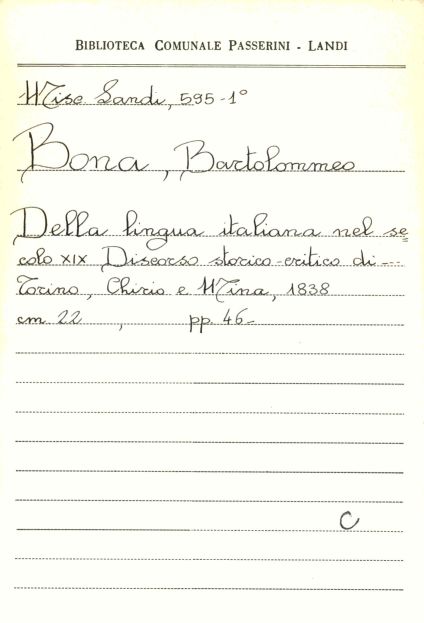 BIBLIOTECA COMUNALE PASSERINI - LANDI
Misc Landi, 595-1°
Bona, Bartolommeo
Della lingua italiana nel se=
colo XIX Discorso storico-critico di ---
Torino, Chirio e Mina, 1838
cm 22 , pp. 46-
C